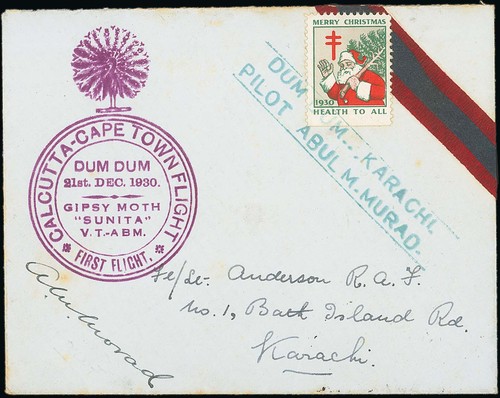 MERRY CHRISTMAS
1930
HEALTH TO ALL
DUM DUM...KARACHI.
PILOT ABUL M. MURAD.
CALCUTTA-CAPE TOWN FLIGHT
DUM DUM
21st. DEC. 1930.
GIPSY MOTH
"SUNITA"
V.T.-ABM.
FIRST FLIGHT.
Anderson R. A. F.
No. 1, Bath Island Rd.
Karachi.